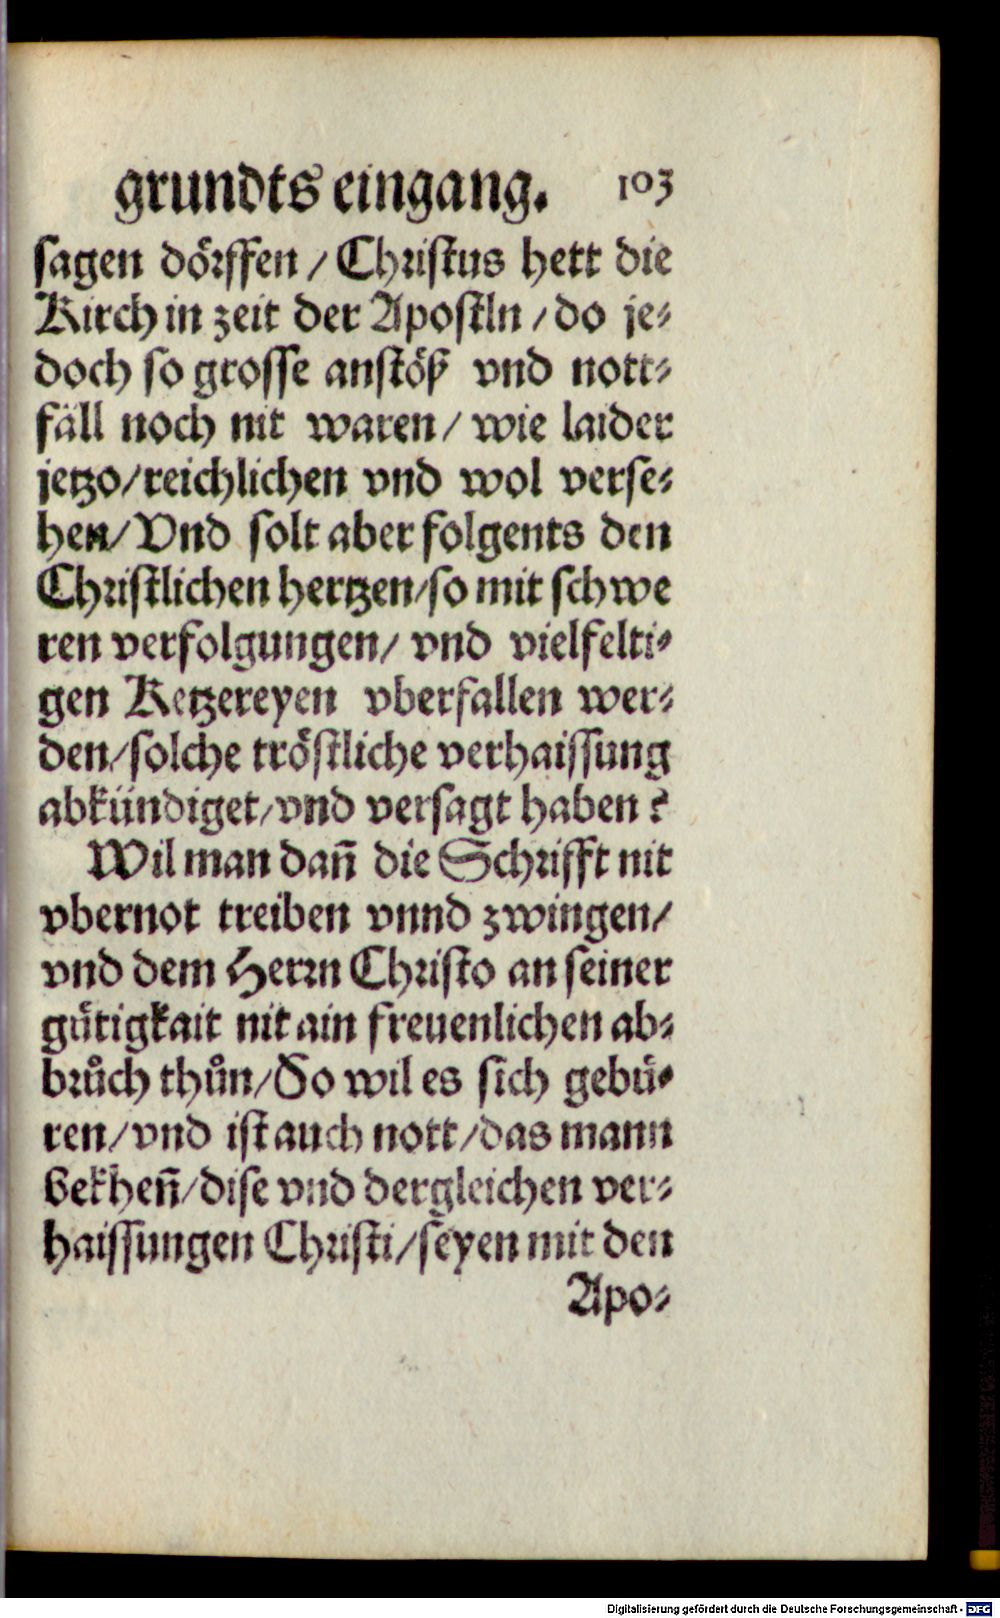 grundts eingang. 103
sagen dörffen / Christus hett die
Kirch in zeit der Apostln / do je⸗
doch so grosse anstöß vnd nott⸗
fäll noch nit waren / wie laider
jetzo / reichlichen vnd wol verse⸗
hen / Vnd solt aber folgents den
Christlichen hertzen / so mit schwe
ren verfolgungen / vnd vielfelti⸗
gen Ketzereyen vberfallen wer⸗
den / solche tröstliche verhaissung
abkündiget / vnd versagt haben?
Wil man dañ die Schrifft nit
vbernot treiben vnnd zwingen /
vnd dem Herrn Christo an seiner
gütigkait nit ain freuenlichen ab⸗
brůch thůn / So wil es sich gebü⸗
ren / vnd ist auch nott / das mann
bekheñ / dise vnd dergleichen ver⸗
haissungen Christi / seyen mit den
Apo⸗
Digitalisierung gefördert durch die Deutsche Forschungsgemeinschaft - DFG